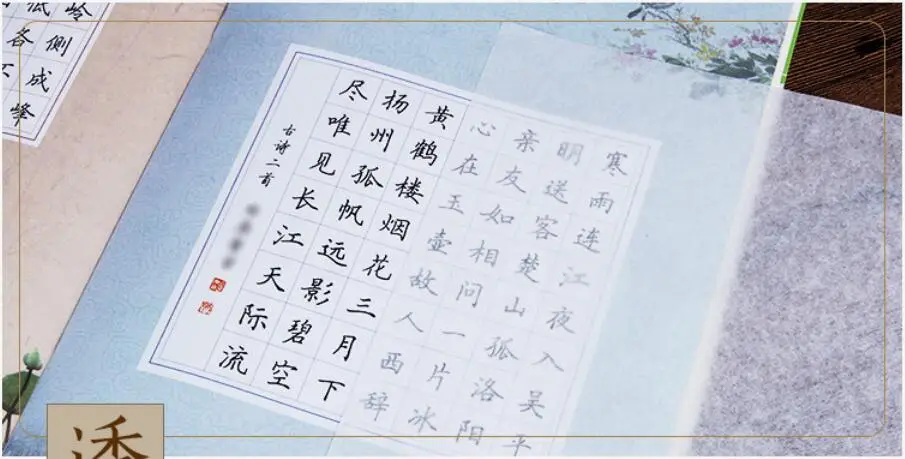 寒雨连江夜入吴平
明送客楚山孤洛阳
亲友如相问一片冰
心在玉壶故人西辞
黄鹤楼烟花三月下
扬州孤帆远影碧空
尽唯见长江天际流
古诗二首
岭侧成峰
低各不
透